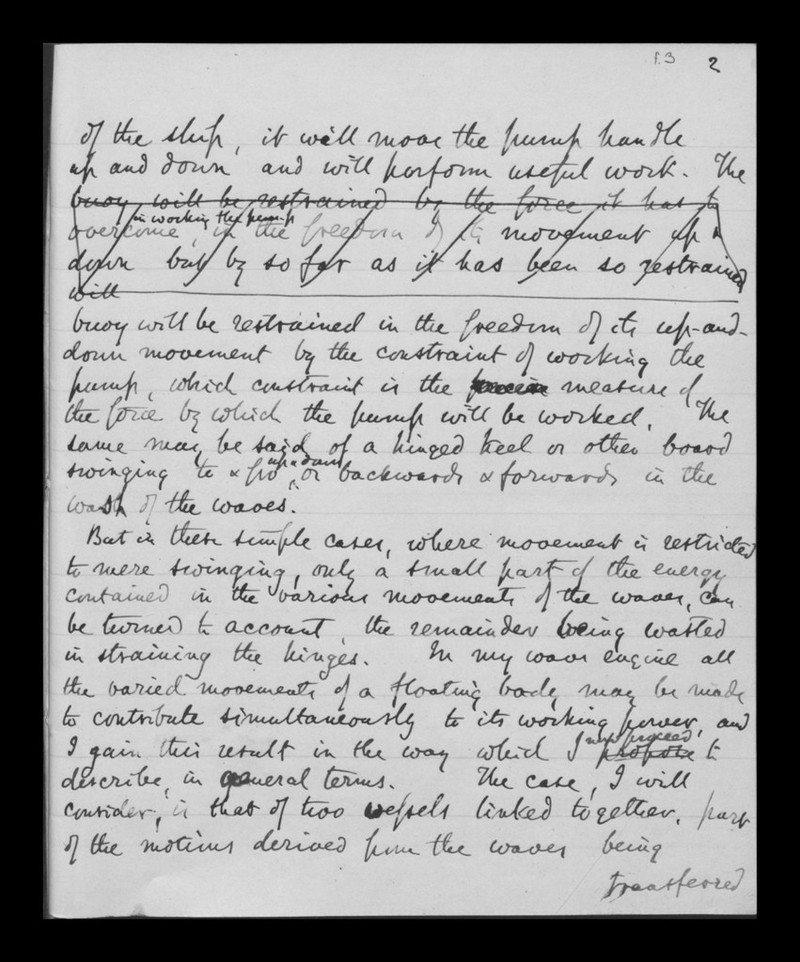 P. 3 2
of the ship, it will move the pump handle
up and down and will perform useful work. The
buoy will be restrained by the force it has to
in working the pump
overcome, in the freedom of its movement up &
down but by so far as it has been so restrained
will
buoy will be restrained in the freedom of its up-and-
down movement by the constraint of working the
pump, which constraint is the measure of
the force by which the pump will be worked. The
same may be said of a hinged keel or other board
up & down
swinging to & fro, or backwards & forwards in the
wash of the waves.
But in these simple cases, where movement is restricted
to mere swinging, only a small part of the energy
contained in the various movements of the waves, can
be turned to account, the remainder being wasted
in straining the hinges. In my wave engine all
the varied movements of a floating body may be made
to contribute simultaneously to its working power, and
now proceed
I gain this result in the way which I propose to
describe, in general terms. The case, I will
consider, is that of two vessels linked together, part
of the motions derived from the waves being
transferred